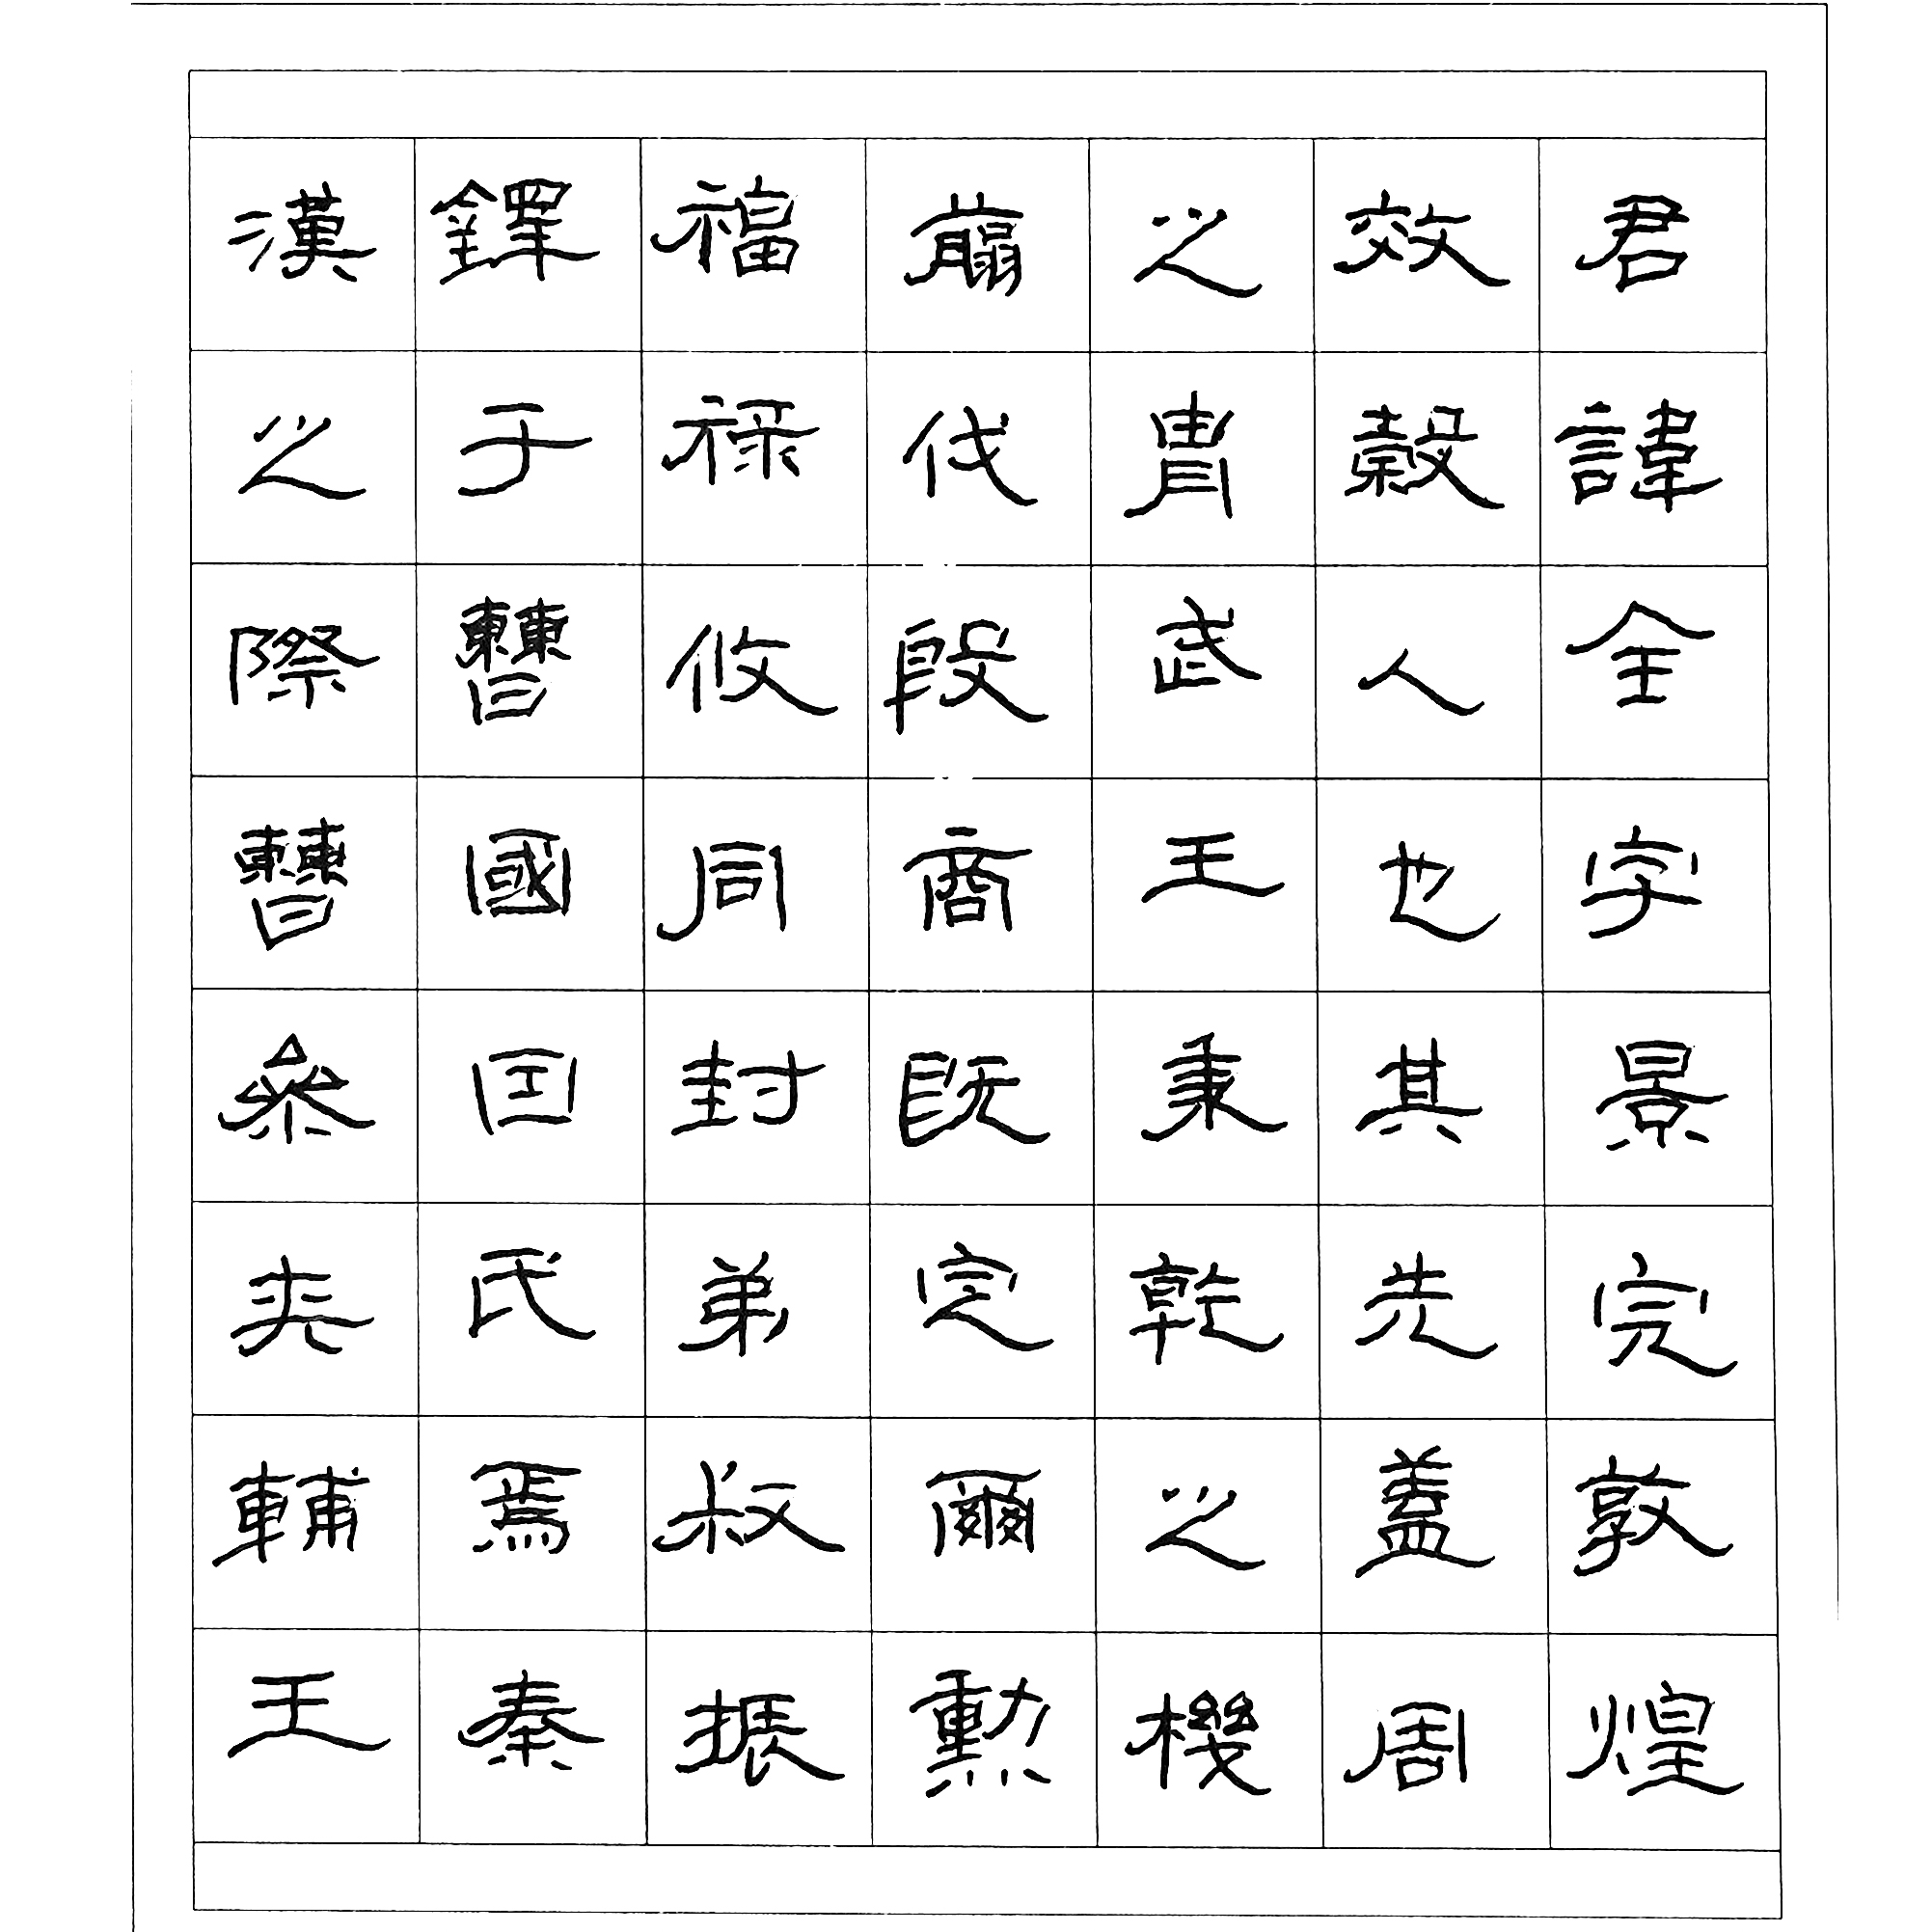 君諱全字景完敦煌
效穀人也其先盖周
之胄武王秉乾之機
翦伐殷商既定爾勳
福禄攸同封弟叔振
鐸于曹國因氏焉秦
漢之際曹參夾輔王